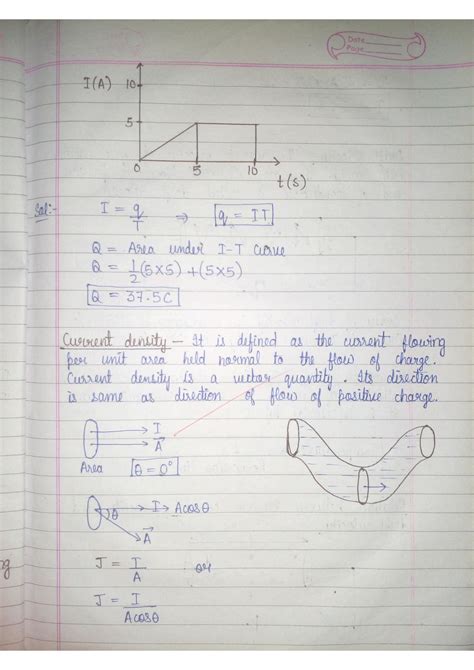 Date
Page
I(A)
10
5
0
5
10
t(s)
Sol:-
I = q/T ⇒ q = IT
Q = Area under I-T curve
Q = 1/2 (5×5) + (5×5)
Q = 37.5C
Current density – It is defined as the current flowing
per unit area held normal to the flow of charge.
Current density is a vector quantity. Its direction
is same as direction of flow of positive charge.
I
A⃗
Area
θ = 0°
θ
I → Acosθ
A⃗
J = I/A or
J = I/Acosθ